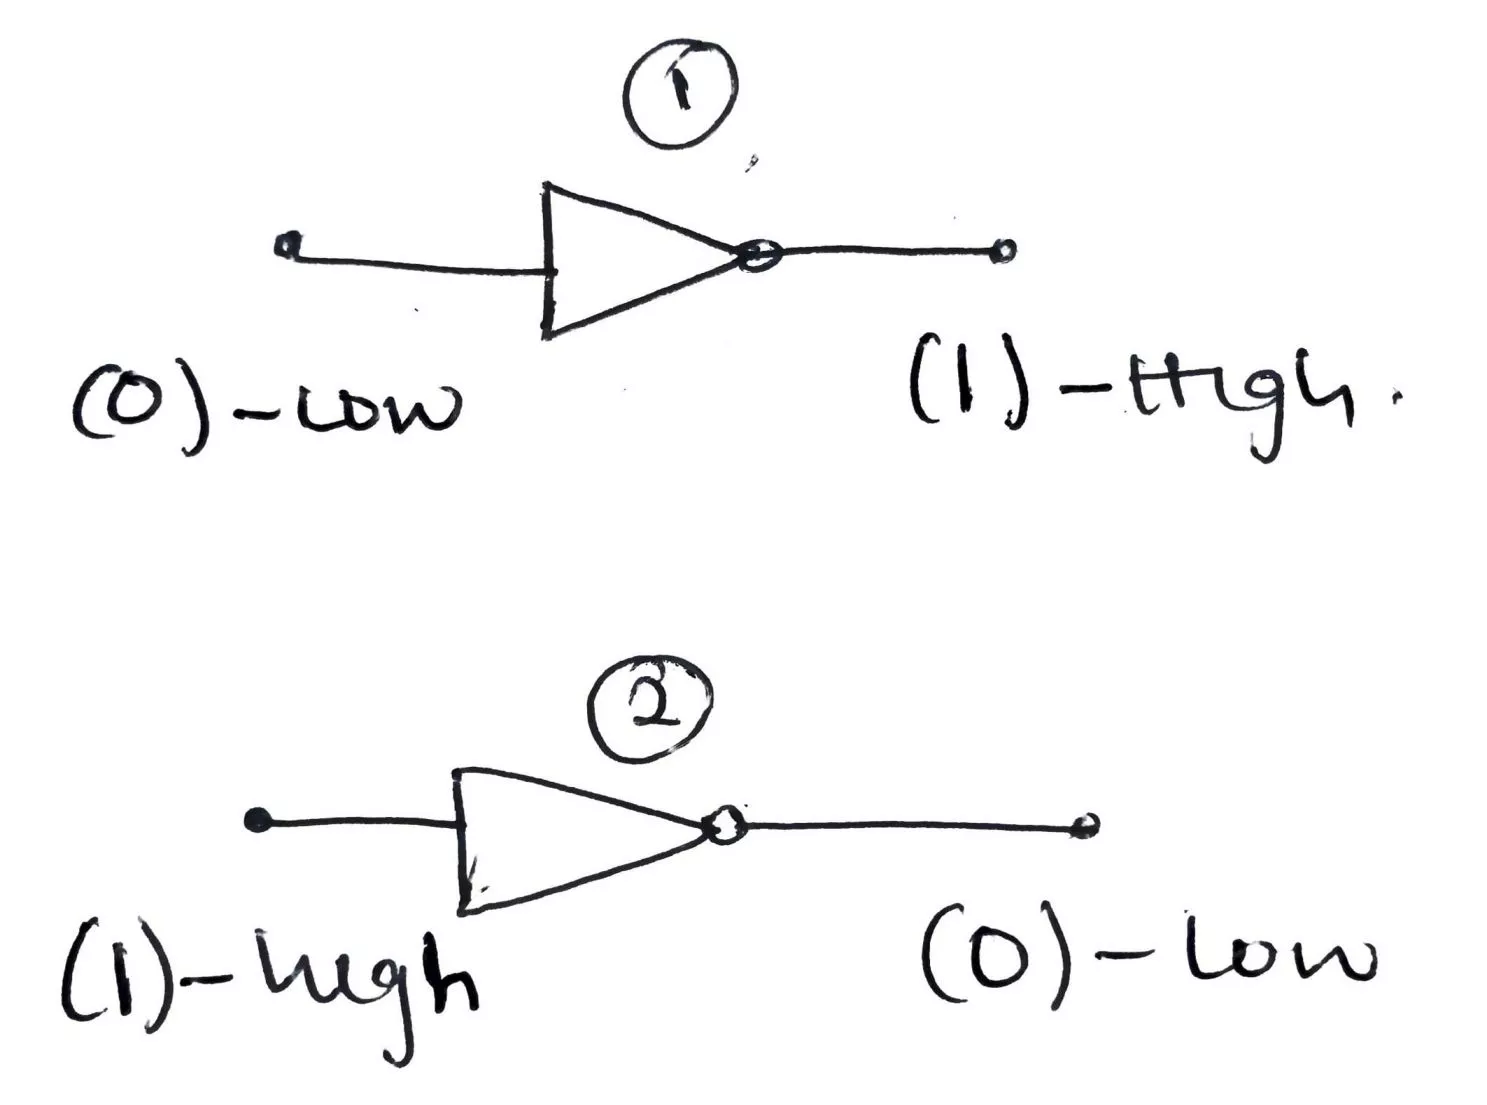 1
(0)-Low
(1)-High.
2
(1)-high
(0)-Low